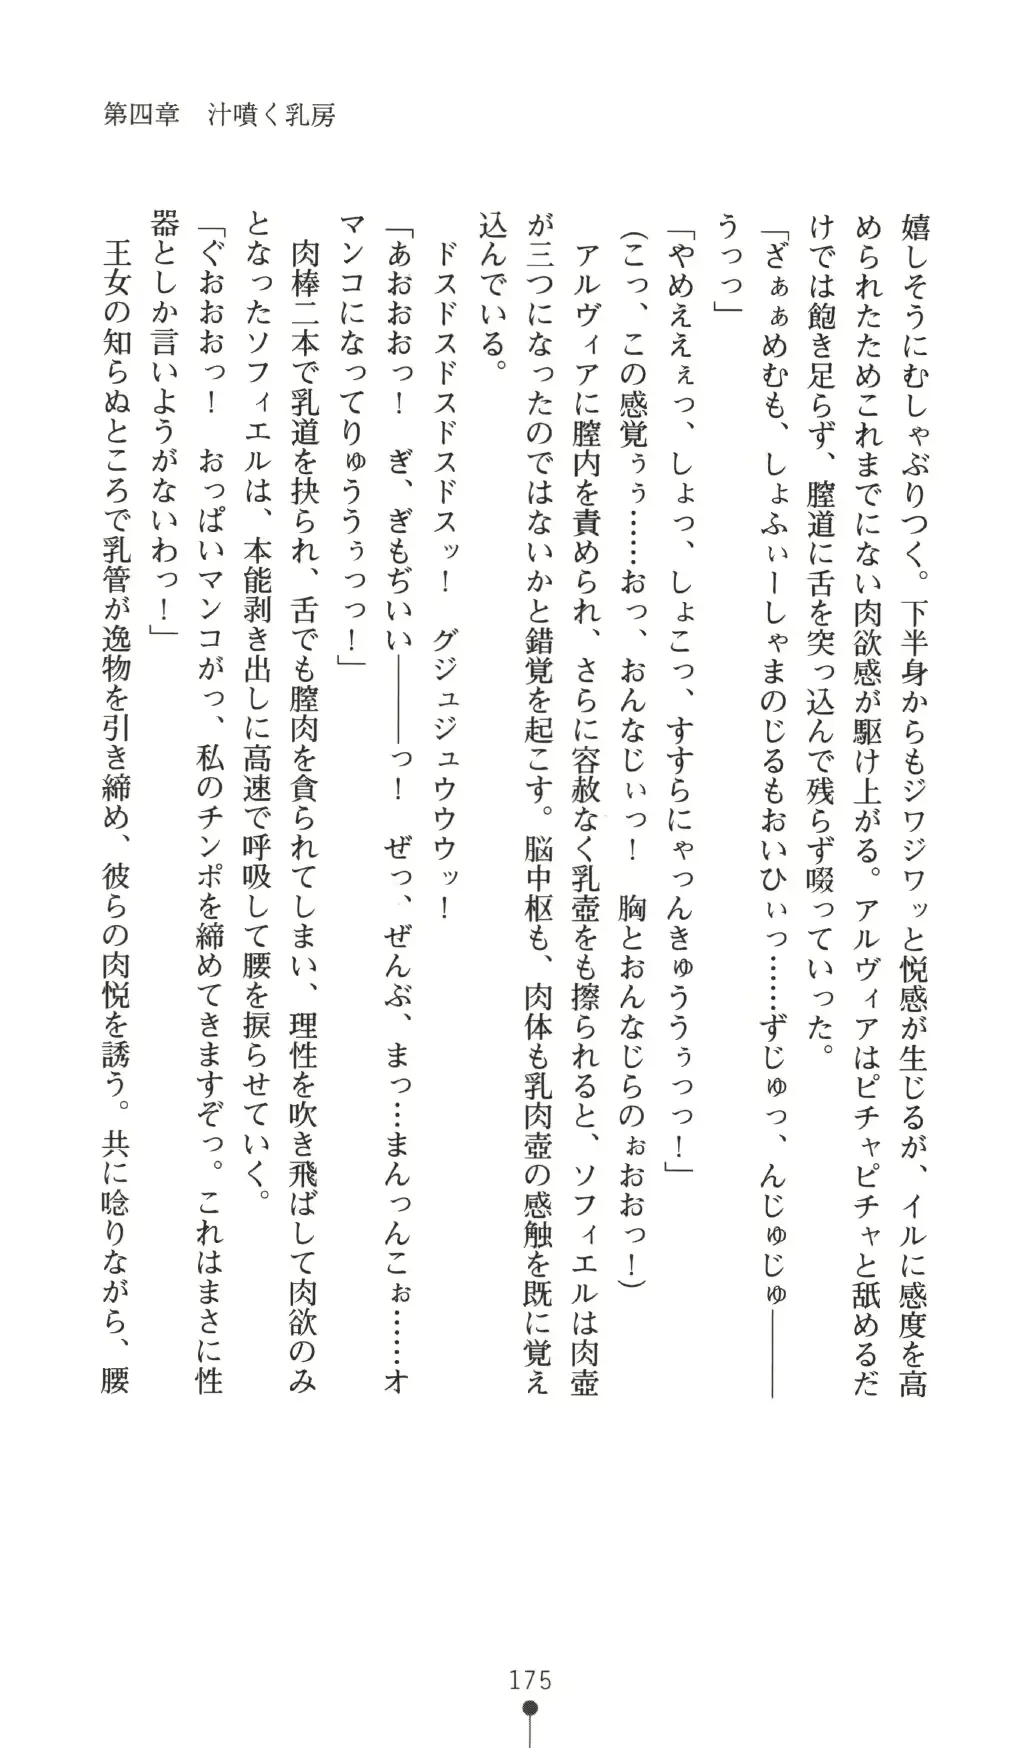 第四章　汁噴く乳房
嬉しそうにむしゃぶりつく。下半身からもジワジワッと悦感が生じるが、イルに感度を高
められたためこれまでにない肉欲感が駆け上がる。アルヴィアはピチャピチャと舐めるだ
けでは飽き足らず、膣道に舌を突っ込んで残らず啜っていった。
「ざぁぁめむも、しょふぃーしゃまのじるもおいひぃっ……ずじゅっ、んじゅじゅ――――
うっっ」
「やめええぇっ、しょっ、しょこっ、すすらにゃっんきゅううぅっっ！」
（こっ、この感覚ぅぅ……おっ、おんなじぃっ！　胸とおんなじらのぉおおっ！）
　アルヴィアに膣内を責められ、さらに容赦なく乳壺をも擦られると、ソフィエルは肉壺
が三つになったのではないかと錯覚を起こす。脳中枢も、肉体も乳肉壺の感触を既に覚え
込んでいる。
　ドスドスドスドスドスッ！　グジュジュウウウッ！
「あおおおっ！　ぎ、ぎもぢいい――――っ！　ぜっ、ぜんぶ、まっ…まんっんこぉ……オ
マンコになってりゅううぅっっ！」
　肉棒二本で乳道を抉られ、舌でも膣肉を貪られてしまい、理性を吹き飛ばして肉欲のみ
となったソフィエルは、本能剥き出しに高速で呼吸して腰を捩らせていく。
「ぐおおおっ！　おっぱいマンコがっ、私のチンポを締めてきますぞっ。これはまさに性
器としか言いようがないわっ！」
　王女の知らぬところで乳管が逸物を引き締め、彼らの肉悦を誘う。共に唸りながら、腰
175